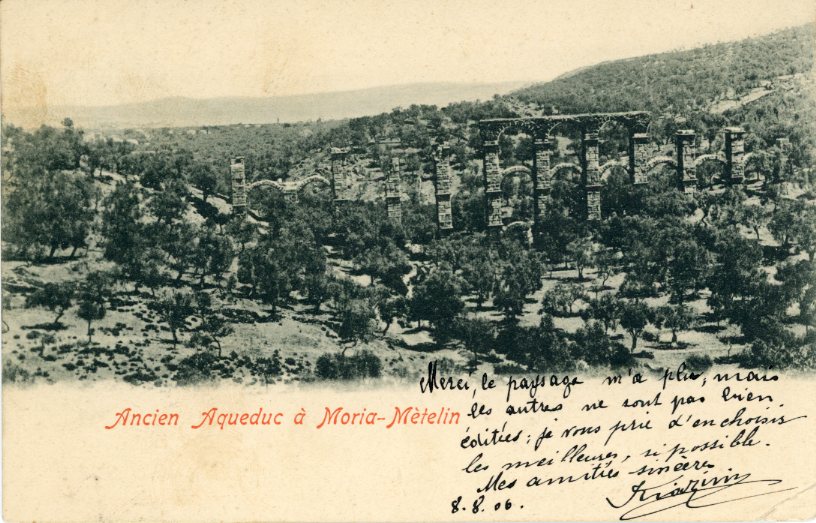 Ancien Aqueduc à Moria-Mètelin
Merci, le paysage m'a plu, mais
les autres ne sont pas bien
édités; je vous prie d'en choisir
les meilleures, si possible.
Mes amitiés sincères
8.8.06.